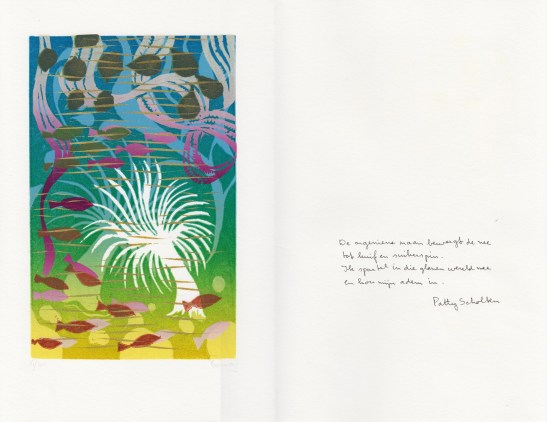 De ongeziene maan beweegt de zee
tot kuif en suikerspin.
Ik spartel in die glazen wereld mee
en hou mijn adem in.
Patty Scholten